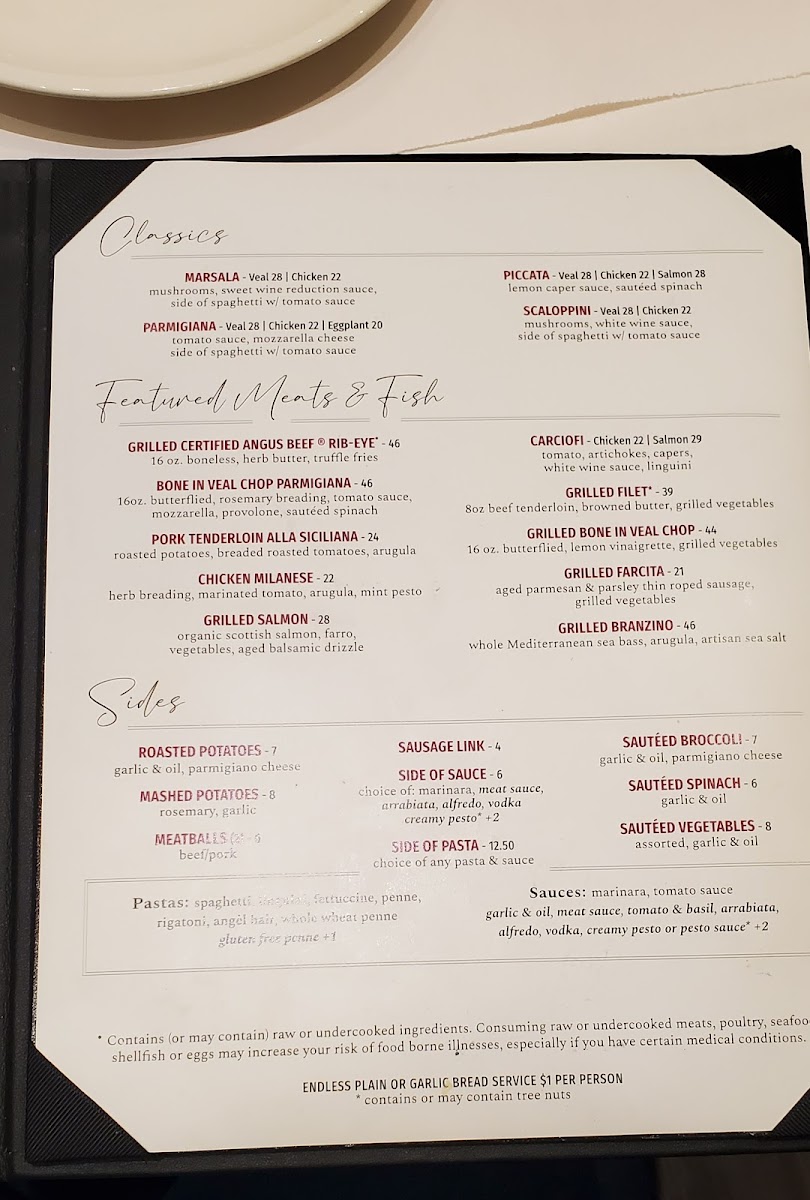 Classics
MARSALA - Veal 28 | Chicken 22
mushrooms, sweet wine reduction sauce,
side of spaghetti w/ tomato sauce
PARMIGIANA - Veal 28 | Chicken 22 | Eggplant 20
tomato sauce, mozzarella cheese
side of spaghetti w/ tomato sauce
PICCATA - Veal 28 | Chicken 22 | Salmon 28
lemon caper sauce, sautéed spinach
SCALOPPINI - Veal 28 | Chicken 22
mushrooms, white wine sauce,
side of spaghetti w/ tomato sauce
Featured Meats & Fish
GRILLED CERTIFIED ANGUS BEEF ® RIB-EYE* - 46
16 oz. boneless, herb butter, truffle fries
BONE IN VEAL CHOP PARMIGIANA - 46
16oz. butterflied, rosemary breading, tomato sauce,
mozzarella, provolone, sautéed spinach
PORK TENDERLOIN ALLA SICILIANA - 24
roasted potatoes, breaded roasted tomatoes, arugula
CHICKEN MILANESE - 22
herb breading, marinated tomato, arugula, mint pesto
GRILLED SALMON - 28
organic scottish salmon, farro,
vegetables, aged balsamic drizzle
CARCIOFI - Chicken 22 | Salmon 29
tomato, artichokes, capers,
white wine sauce, linguini
GRILLED FILET* - 39
8oz beef tenderloin, browned butter, grilled vegetables
GRILLED BONE IN VEAL CHOP - 44
16 oz. butterflied, lemon vinaigrette, grilled vegetables
GRILLED FARCITA - 21
aged parmesan & parsley thin roped sausage,
grilled vegetables
GRILLED BRANZINO - 46
whole Mediterranean sea bass, arugula, artisan sea salt
Sides
ROASTED POTATOES - 7
garlic & oil, parmigiano cheese
MASHED POTATOES - 8
rosemary, garlic
MEATBALLS - 6
beef/pork
SAUSAGE LINK - 4
SIDE OF SAUCE - 6
choice of: marinara, meat sauce,
arrabiata, alfredo, vodka
creamy pesto* +2
SIDE OF PASTA - 12.50
choice of any pasta & sauce
SAUTÉED BROCCOLI - 7
garlic & oil, parmigiano cheese
SAUTÉED SPINACH - 6
garlic & oil
SAUTÉED VEGETABLES - 8
assorted, garlic & oil
Pastas: spaghetti, fettuccine, penne,
rigatoni, angel hair, whole wheat penne
gluten free penne +1
Sauces: marinara, tomato sauce
garlic & oil, meat sauce, tomato & basil, arrabiata,
alfredo, vodka, creamy pesto or pesto sauce* +2
* Contains (or may contain) raw or undercooked ingredients. Consuming raw or undercooked meats, poultry, seafoo
shellfish or eggs may increase your risk of food borne illnesses, especially if you have certain medical conditions.
ENDLESS PLAIN OR GARLIC BREAD SERVICE $1 PER PERSON
* contains or may contain tree nuts